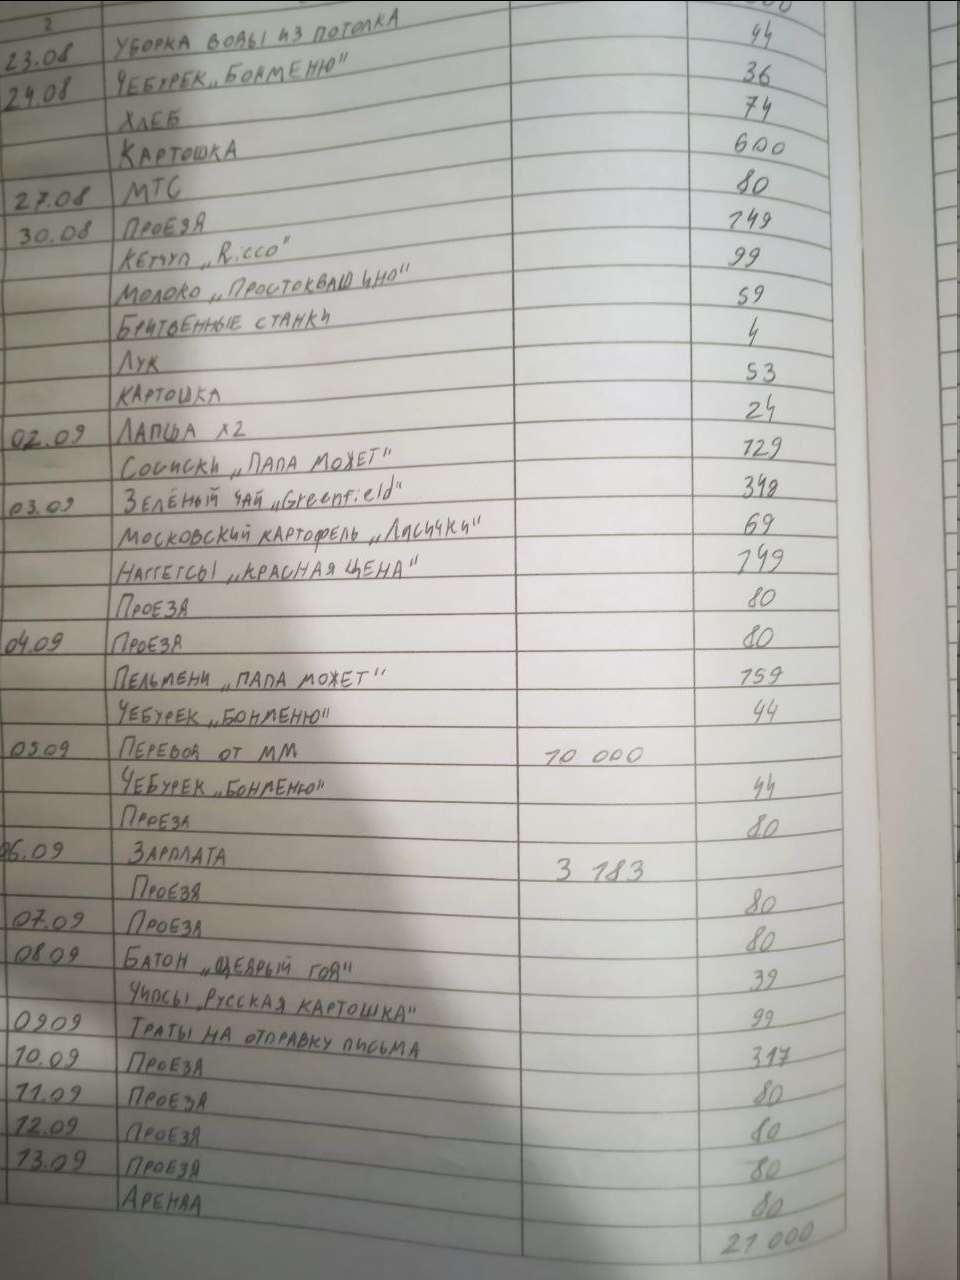 2
23.08 УБОРКА ВОДЫ ИЗ ПОТОЛКА
24.08 ЧЕБУРЕК „БОНМЕНЮ" 44
ХЛЕБ 36
КАРТОШКА 74
27.08 МТС 600
30.08 ПРОЕЗД 80
КЕТЧУП „Ricco" 149
МОЛОКО „ПРОСТОКВАШИНО" 99
БРИТВЕННЫЕ СТАНКИ 59
ЛУК 4
КАРТОШКА 53
02.09 ЛАПША X2 24
СОСИСКИ „ПАПА МОЖЕТ" 129
03.09 ЗЕЛЁНЫЙ ЧАЙ „Greenfield" 349
МОСКОВСКИЙ КАРТОФЕЛЬ „ЛИСИЧКИ" 69
НАГГЕТСЫ „КРАСНАЯ ЦЕНА" 149
ПРОЕЗД 80
04.09 ПРОЕЗД 80
ПЕЛЬМЕНИ „ПАПА МОЖЕТ" 159
ЧЕБУРЕК „БОНМЕНЮ" 44
05.09 ПЕРЕВОД ОТ ММ 10 000
ЧЕБУРЕК „БОНМЕНЮ" 44
ПРОЕЗД 80
06.09 ЗАРПЛАТА 3 183
ПРОЕЗД 80
07.09 ПРОЕЗД 80
08.09 БАТОН „ЩЕДРЫЙ ГОД" 39
ЧИПСЫ „РУССКАЯ КАРТОШКА" 99
09.09 ТРАТЫ НА ОТПРАВКУ ПИСЬМА 317
10.09 ПРОЕЗД 80
11.09 ПРОЕЗД 80
12.09 ПРОЕЗД 80
13.09 ПРОЕЗД 80
АРЕНДА 21 000